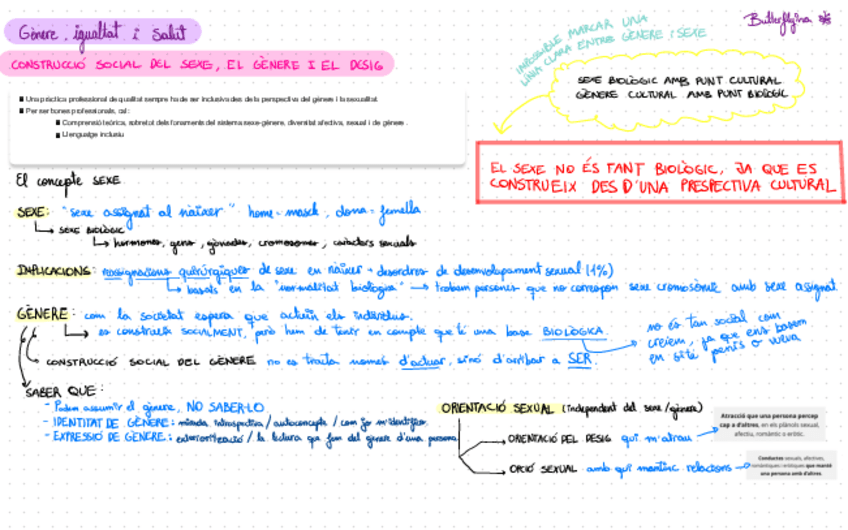 Gènere, igualtat i Salut
Butterflyina
CONSTRUCCIÓ SOCIAL DEL SEXE, EL GÈNERE I EL DESIG
IMPOSSIBLE MARCAR UNA
LÍNIA CLARA ENTRE GÈNERE I SEXE
SEXE BIOLÒGIC AMB PUNT CULTURAL
GÈNERE CULTURAL AMB PUNT BIOLÒGIC
Una pràctica professional de qualitat sempre ha de ser inclusiva des de la perspectiva del gènere i la sexualitat.
Per ser bones professionals, cal:
Comprensió teòrica, sobretot dels fonaments del sistema sexe-gènere, diversitat afectiva, sexual i de gènere.
Llenguatge inclusiu
EL SEXE NO ÉS TANT BIOLÒGIC, JA QUE ES
CONSTRUEIX DES D'UNA PRESPECTIVA CULTURAL
El concepte SEXE
SEXE: "sexe assignat al nàixer" home = mascle, dona = femella
SEXE BIOLÒGIC
hormones, gens, gònades, cromosomes, caràcters sexuals
IMPLICACIONS: reassignacions quirúrgiques de sexe en nàixer - desordres de desenvolupament sexual (1%)
basats en la "normalitat biològica" → trobem persones que no correspon sexe cromosòmic amb sexe assignat.
GÈNERE: com la societat espera que actuïn els individus.
es construeix SOCIALMENT, però hem de tenir en compte que té una base BIOLÒGICA.
no és tan social com
creiem, ja que ens basem
en si té penis o vulva
CONSTRUCCIÓ SOCIAL DEL GÈNERE no es tracta només d'actuar, sinó d'arribar a SER.
SABER QUE:
- Podem assumir el gènere, NO SABER-LO
- IDENTITAT DE GÈNERE: mirada introspectiva / autoconcepte / com jo m'identifico
- EXPRESSIÓ DE GÈNERE: exteriorització / la lectura que fem del gènere d'una persona
ORIENTACIÓ SEXUAL (independent del sexe/gènere)
ORIENTACIÓ DEL DESIG qui m'atrau
Atracció que una persona percep
cap a d'altres, en els plànols sexual,
afectiu, romàntic o eròtic.
OPCIÓ SEXUAL amb qui mantinc relacions
Conductes sexuals, afectives,
romàntiques i eròtiques que manté
una persona amb d'altres